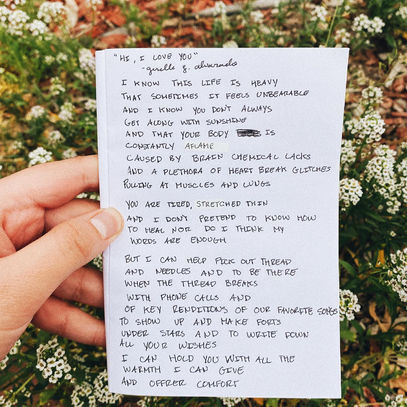 "HI, I LOVE YOU"
-giselle g. alvarado
I KNOW THIS LIFE IS HEAVY
THAT SOMETIMES IT FEELS UNBEARABLE
AND I KNOW YOU DON'T ALWAYS
GET ALONG WITH SUNSHINE
AND THAT YOUR BODY IS
CONSTANTLY AFLAME
CAUSED BY BRAIN CHEMICAL LACKS
AND A PLETHORA OF HEART BREAK GLITCHES
PULLING AT MUSCLES AND LUNGS
YOU ARE TIRED, STRETCHED THIN
AND I DON'T PRETEND TO KNOW HOW
TO HEAL NOR DO I THINK MY
WORDS ARE ENOUGH
BUT I CAN HELP PICK OUT THREAD
AND NEEDLES AND TO BE THERE
WHEN THE THREAD BREAKS
WITH PHONE CALLS AND
OF KEY RENDITIONS OF OUR FAVORITE SONGS
TO SHOW UP AND MAKE FORTS
UNDER STARS AND TO WRITE DOWN
ALL YOUR WISHES
I CAN HOLD YOU WITH ALL THE
WARMTH I CAN GIVE
AND OFFER COMFORT